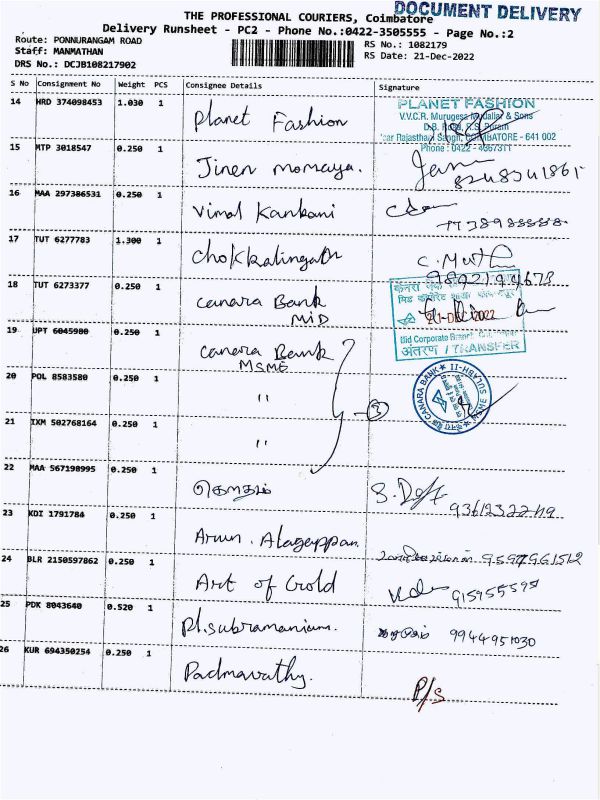 DOCUMENT DELIVERY
THE PROFESSIONAL COURIERS, Coimbatore
Delivery Runsheet - PC2 - Phone No.:0422-3505555 - Page No.:2
Route: PONNURANGAM ROAD
Staff: MANMATHAN
DRS No.: DCJB108217902
RS No.: 1082179
RS Date: 21-Dec-2022
S No Consignment No Weight PCS Consignee Details Signature
14 HRD 374098453 1.030 1 Planet Fashion
PLANET FASHION
V.V.C.R. Murugesa Mudaliar & Sons
D.B. Road, R.S. Puram
COIMBATORE - 641 002
Phone : 0422 -
15 MTP 3018547 0.250 1 Jinen momaya.
16 MAA 297386531 0.250 1 Vimal Kankani
17 TUT 6277783 1.300 1 Chokkalingath
18 TUT 6273377 0.250 1 Canara Bank
MID
21 DEC 2022
Mid Corporate Branch
अंतरण / TRANSFER
19 JPT 6045980 0.250 1 Canara Bank
MSME
CANARA BANK
20 POL 8503580 0.250 1 "
3
21 IXM 502768164 0.250 1 "
22 MAA 567198995 0.250 1
23 KDI 1791784 0.250 1 Arun. Alagappan.
24 BLR 2150597862 0.250 1 Art of Gold
25 PDK 8043640 0.520 1 Pl.subramanium. 9944951030
26 KUR 694350254 0.250 1 Padmavathy.
P/s